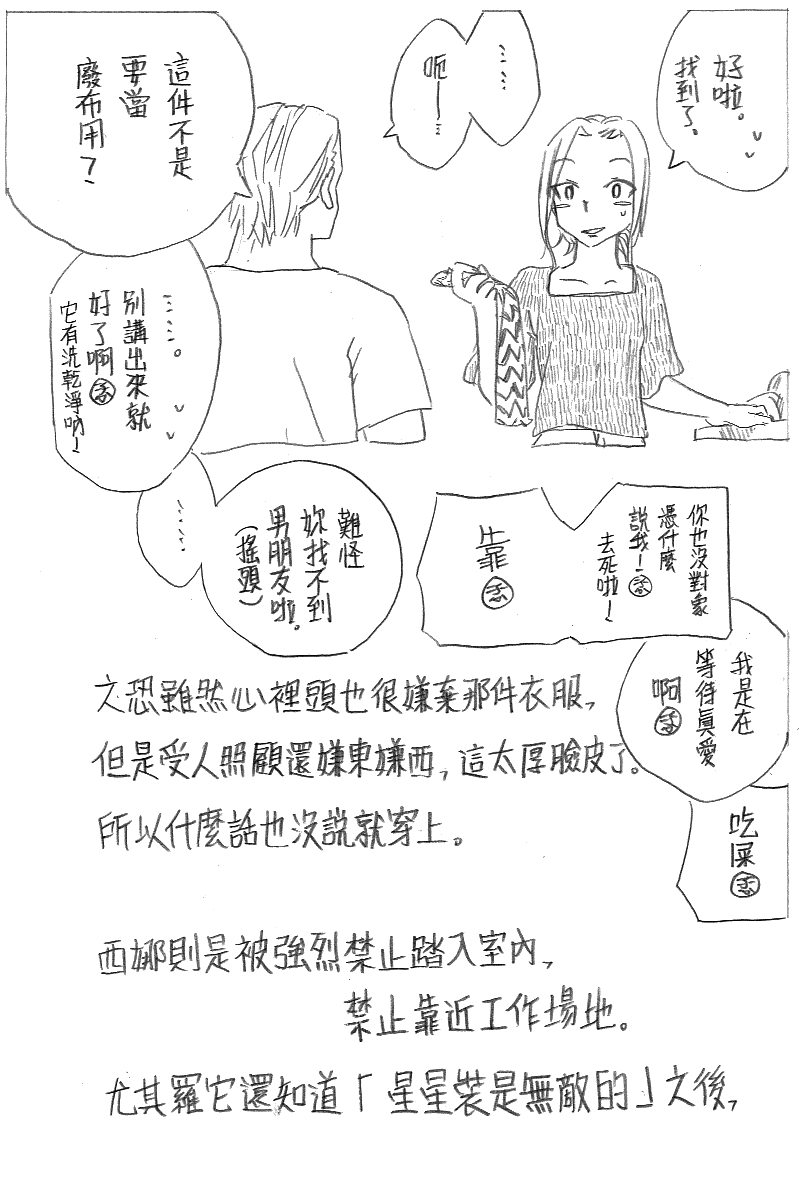 好啦。
找到了、
……
呃——
這件不是
要當
廢布用？
……。
別講出來就
好了啊
它有洗乾淨吶～
你也沒對象
憑什麼
說我！
去死啦！
靠
難怪
妳找不到
男朋友啦。
(搖頭)
……
我是在
等待真愛
啊
吃屎
文恐雖然心裡頭也很嫌棄那件衣服，
但是受人照顧還嫌東嫌西，這太厚臉皮了。
所以什麼話也沒說就穿上。
西娜則是被強烈禁止踏入室內，
禁止靠近工作場地。
尤其羅它還知道「星星裝是無敵的」之後，